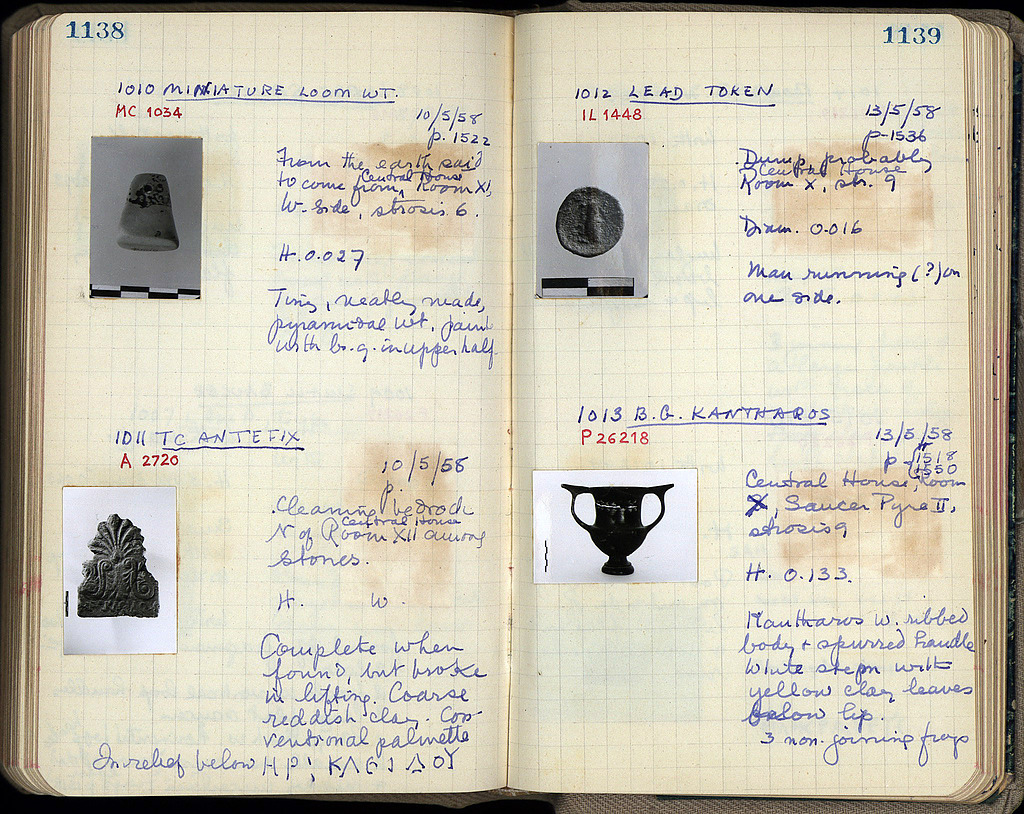 1138
1010 MINIATURE LOOM WT.
MC 1034
10/5/58
p. 1522
From the earth said
to come from, Central House Room XI,
W. Side, strosis 6.
H. 0.027
Tiny, neatly made,
pyramidal wt. paint
with b.g. in upper half
1011 TC ANTEFIX
A 2720
10/5/58
p.
Cleaning bedrock
N of Central House Room XII among
stones.
H. W.
Complete when
found, but broke
in lifting. Coarse
reddish clay. Con-
ventional palmette
In relief below
1139
1012 LEAD TOKEN
IL 1448
13/5/58
p-1536
Dump, probably
Central House
Room X, str. 9
Diam. 0.016
Man running (?) on
one side.
1013 B.G. KANTHAROS
P 26218
13/5/58
p-1518
1550
Central House, Room
X, Saucer Pyre II,
strosis 9
H. 0.133.
Kantharos w. ribbed
body + spurred handle
White stem with
yellow clay leaves
below lip.
3 non-joining frags